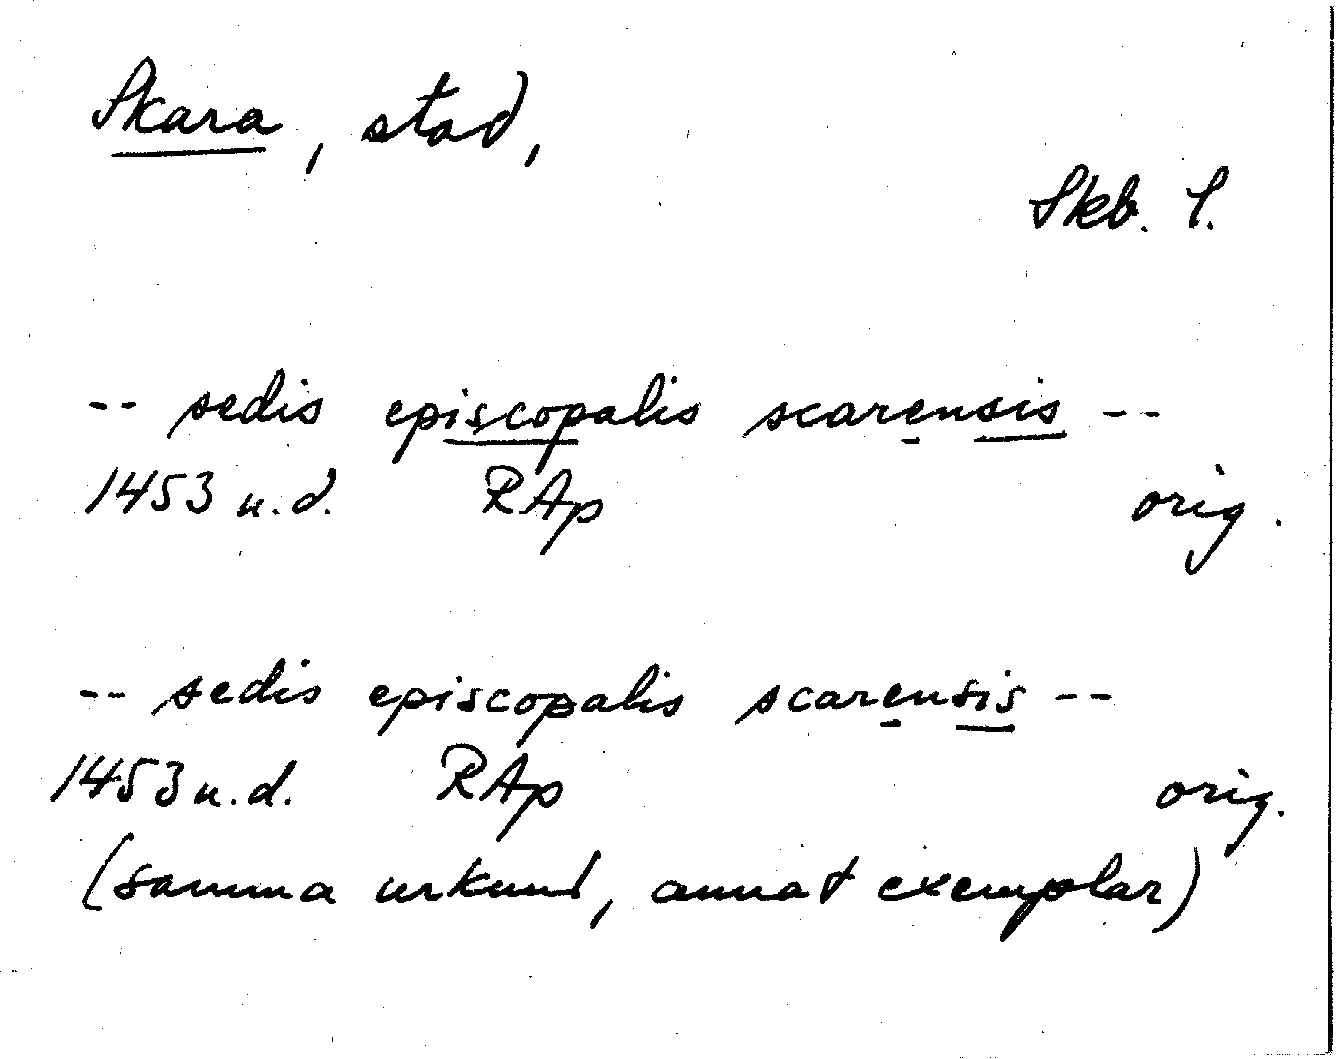 Skara, stad,
Skb. l.
-- sedis episcopalis scarensis --
1453 u.d. RAp orig.
-- sedis episcopalis scarensis --
1453 u.d. RAp orig.
(samma urkund, annat exemplar)